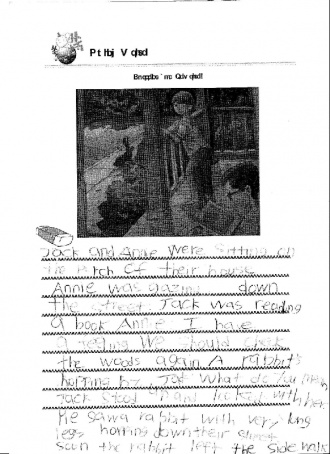 Pt hbj V qhsd
Jack and Annie were sitting on
the Porch of their house
Annie was gazing down
the street Jack was reading
a book Annie I have
a feeling We should check
the woods again A rabbit's
hopping by
Jack Stood up and looked with her
He saw a rabbit with very long
legs hopping down their street
soon the rabbit left the side walk